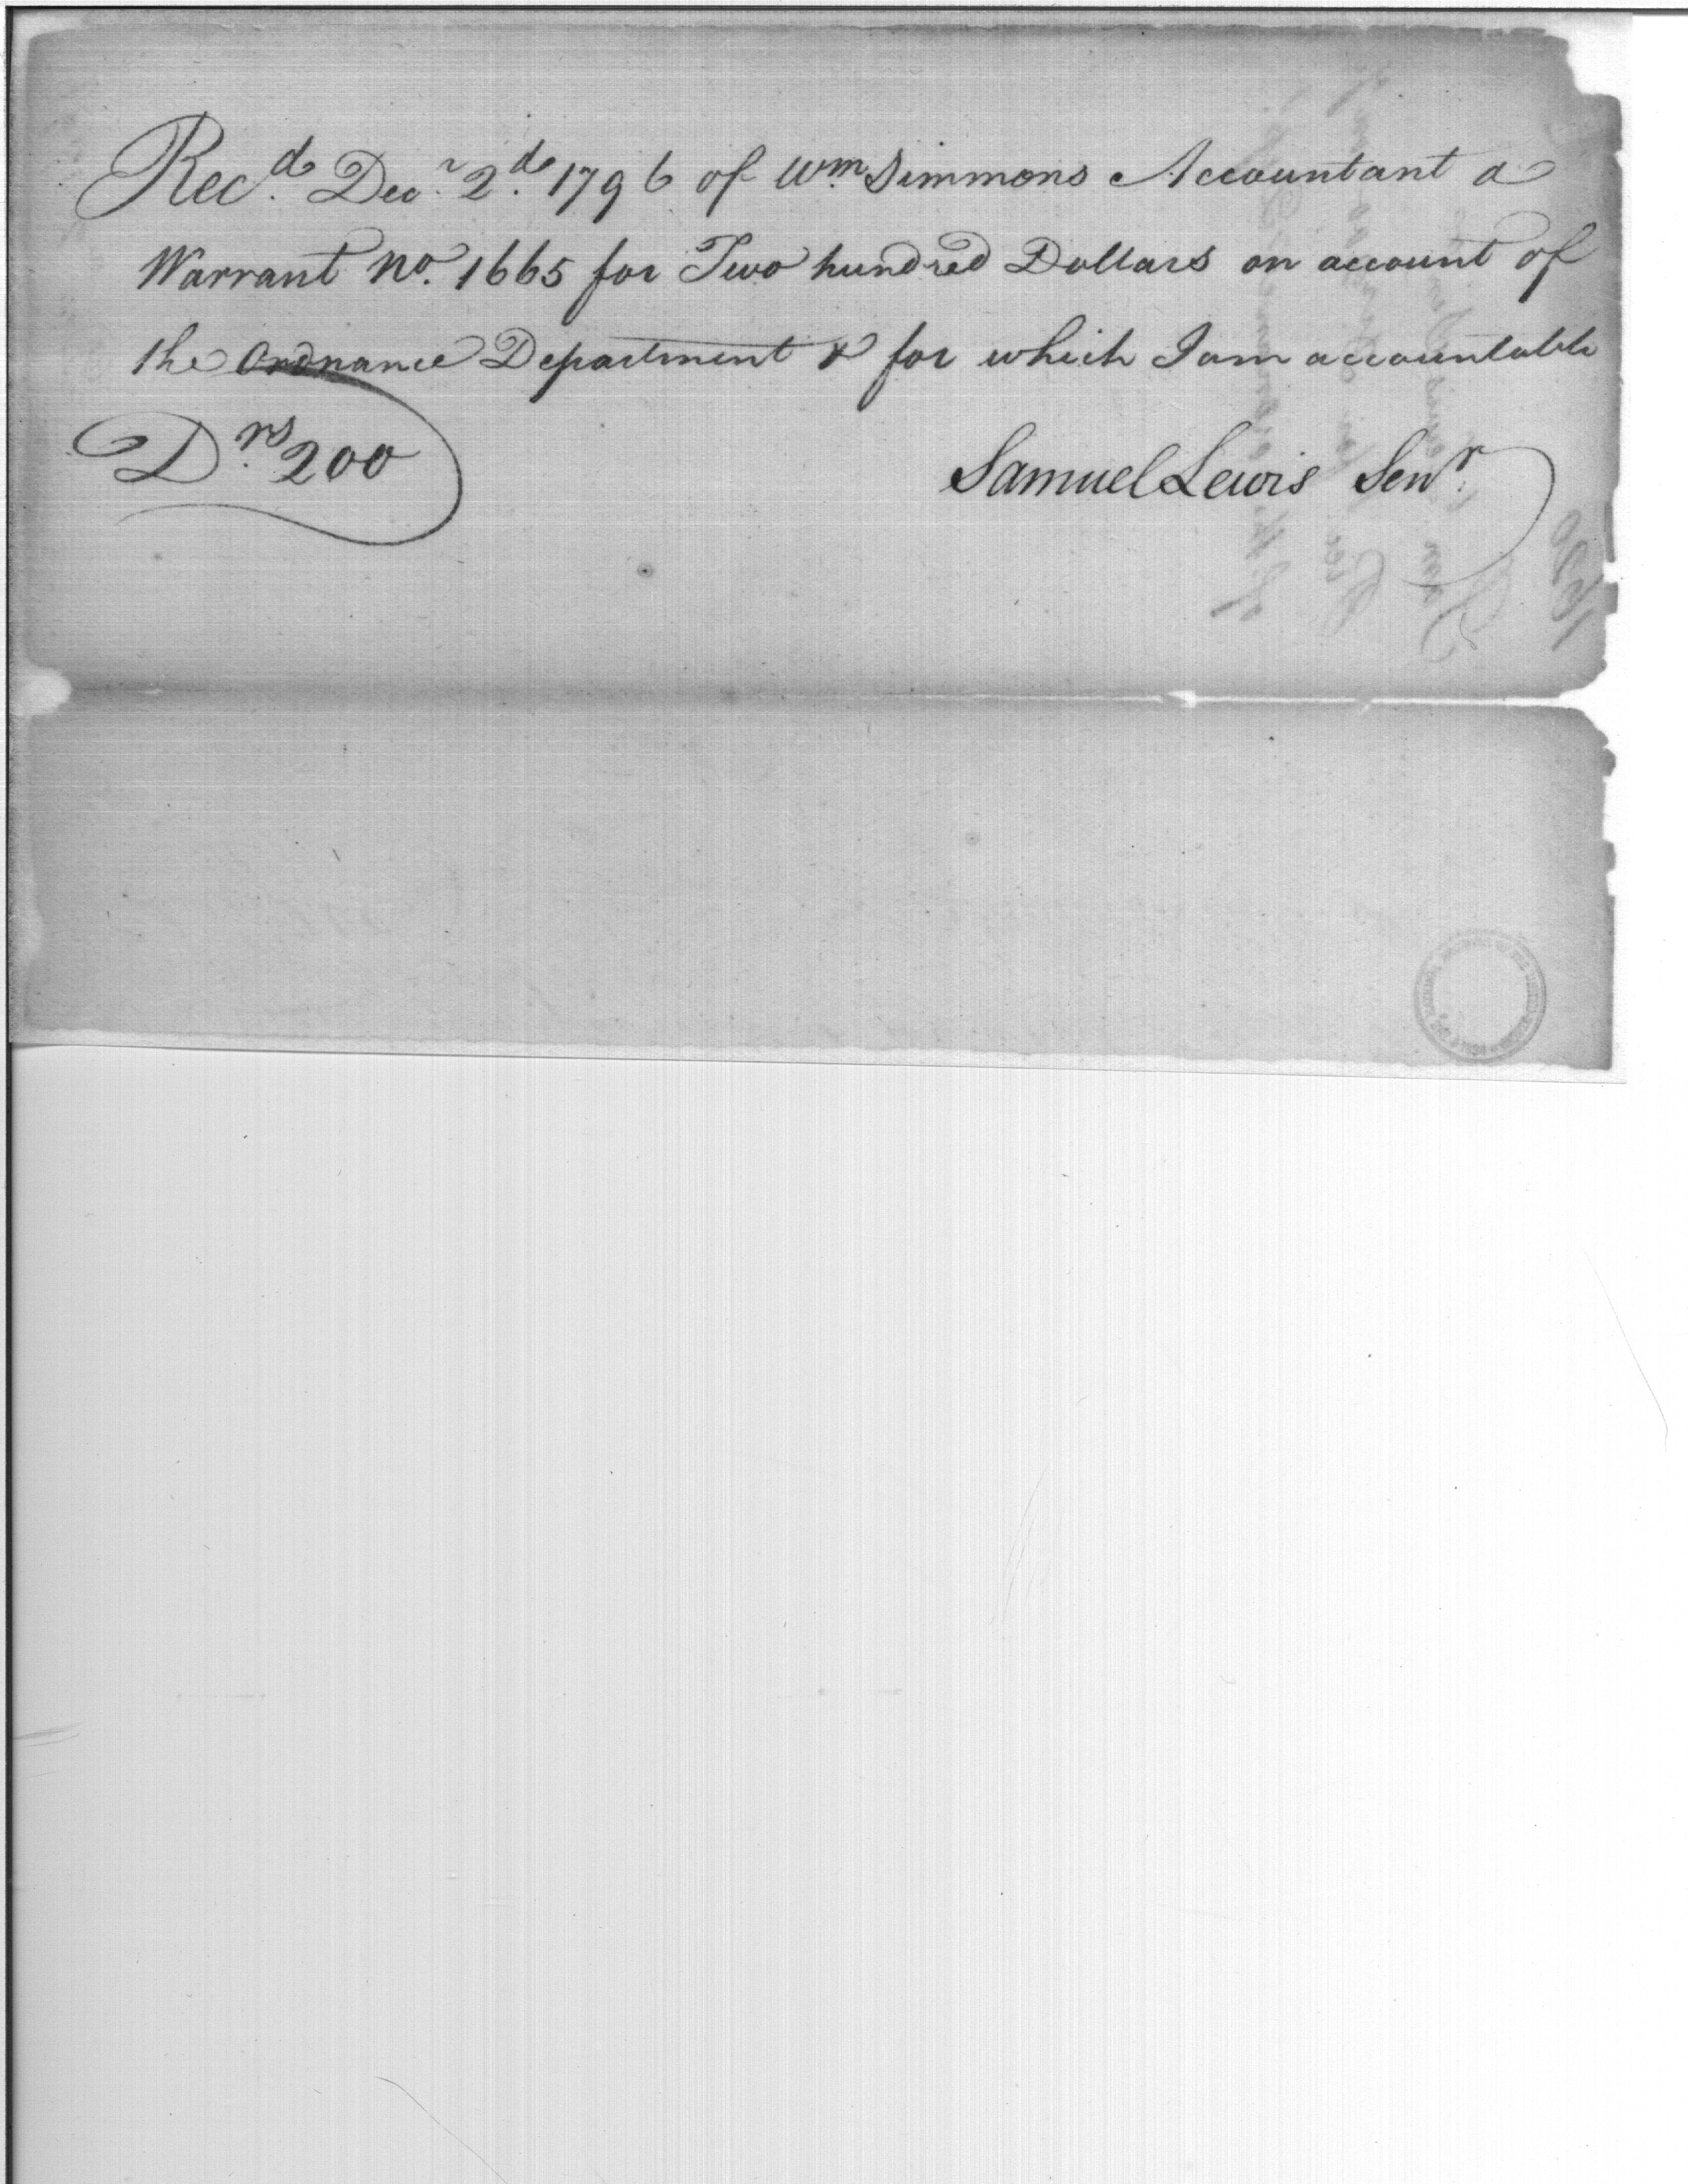 Recd. Decr. 2d. 1796 of Wm. Simmons Accountant a
Warrant No. 1665 for Two hundred Dollars on account of
the Ordnance Department & for which I am accountable
Drs. 200
Samuel Lewis Senr.